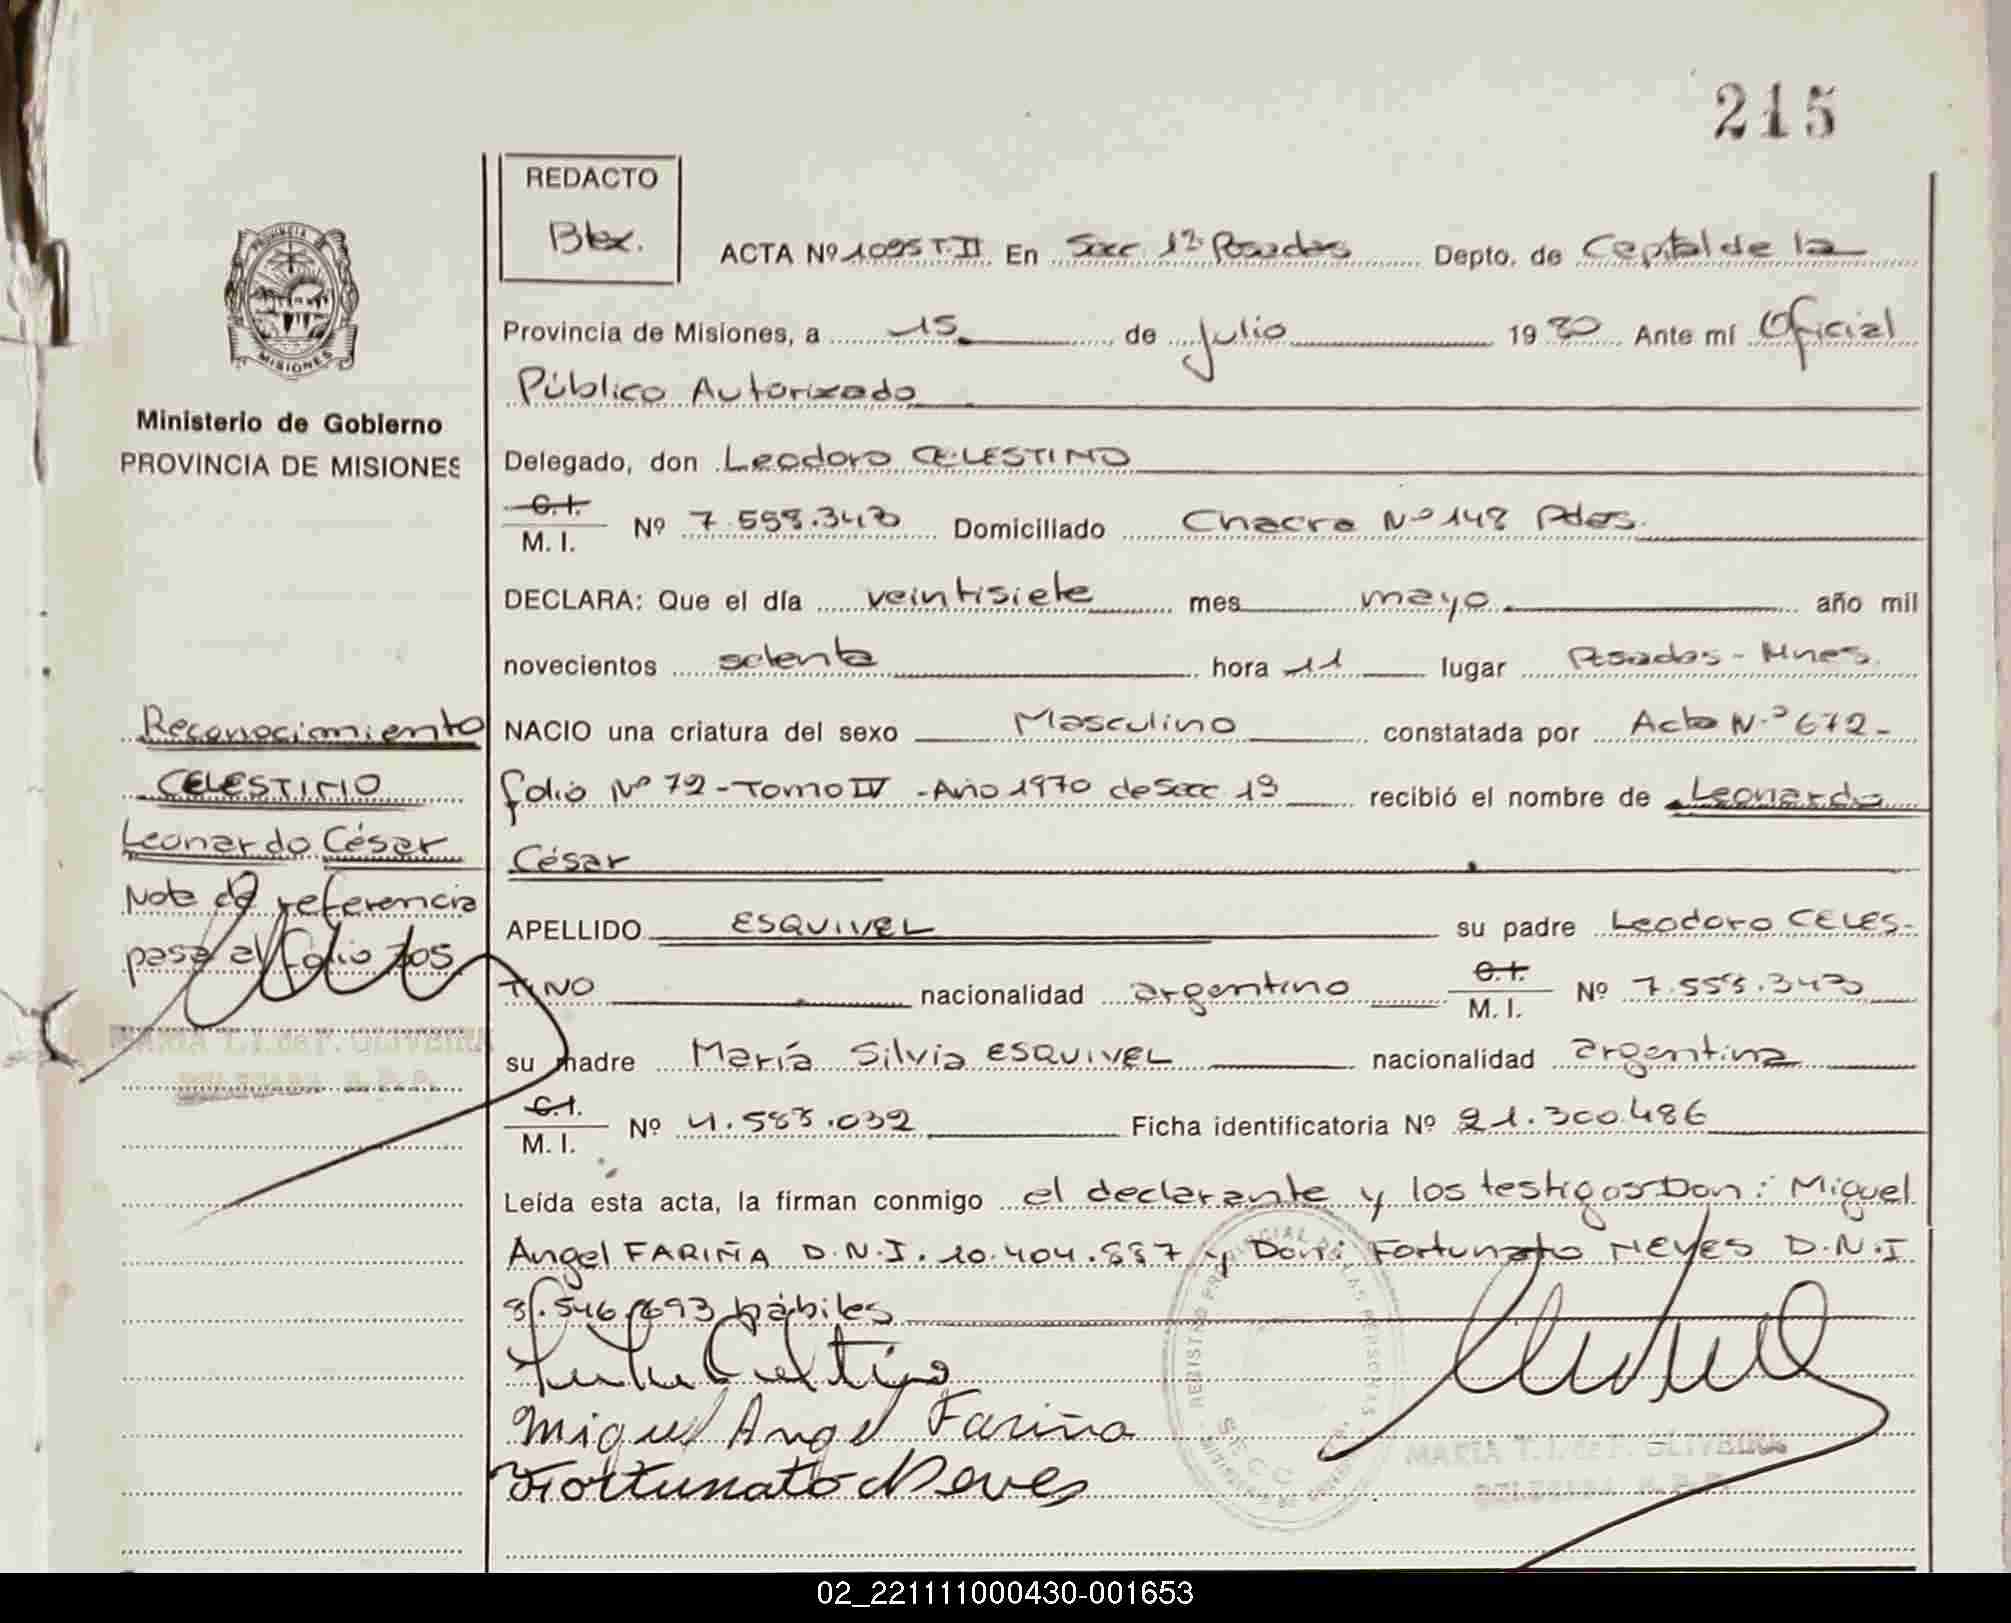 215
REDACTO
Blex.
ACTA Nº 1095 T.II En Secc. 1ª Posadas Depto. de Capital de la
Provincia de Misiones, a 15 de Julio 1980 Ante mí Oficial
Público Autorizado
Delegado, don Leodoro CELESTINO
C.I.
M. I. Nº 7.558.343 Domiciliado Chacra Nº 148 Pdas.
DECLARA: Que el día veintisiete mes mayo año mil
novecientos setenta hora 11 lugar Posadas - Mnes.
NACIO una criatura del sexo Masculino constatada por Acta N.º 672-
folio Nº 72 - Tomo IV - Año 1970 de Secc 1ª recibió el nombre de Leonardo
César
APELLIDO ESQUIVEL su padre Leodoro CELES-
TINO nacionalidad argentino C.I. M. I. Nº 7.558.343
su madre María Silvia ESQUIVEL nacionalidad argentina
C.I.
M. I. Nº 4.583.032 Ficha identificatoria Nº 21.300.486
Leída esta acta, la firman conmigo el declarante y los testigos Don: Miguel
Angel FARIÑA D.N.I. 10.404.887 y Don: Fortunato NEVES D.N.I
8.546.693 hábiles
Miguel Angel Fariña
Fortunato Neves
REGISTRO PROVINCIAL DE LAS PERSONAS
SECC
MARIA T. I. de F. OLIVEIRA
DELEGADA R.P.P.
PROVINCIA DE
MISIONES
Ministerio de Gobierno
PROVINCIA DE MISIONES
Reconocimiento
CELESTINO
Leonardo César
Nota de referencia
pasa al folio 205
MARIA T. I. de F. OLIVEIRA
DELEGADA R.P.P.
02_221111000430-001653